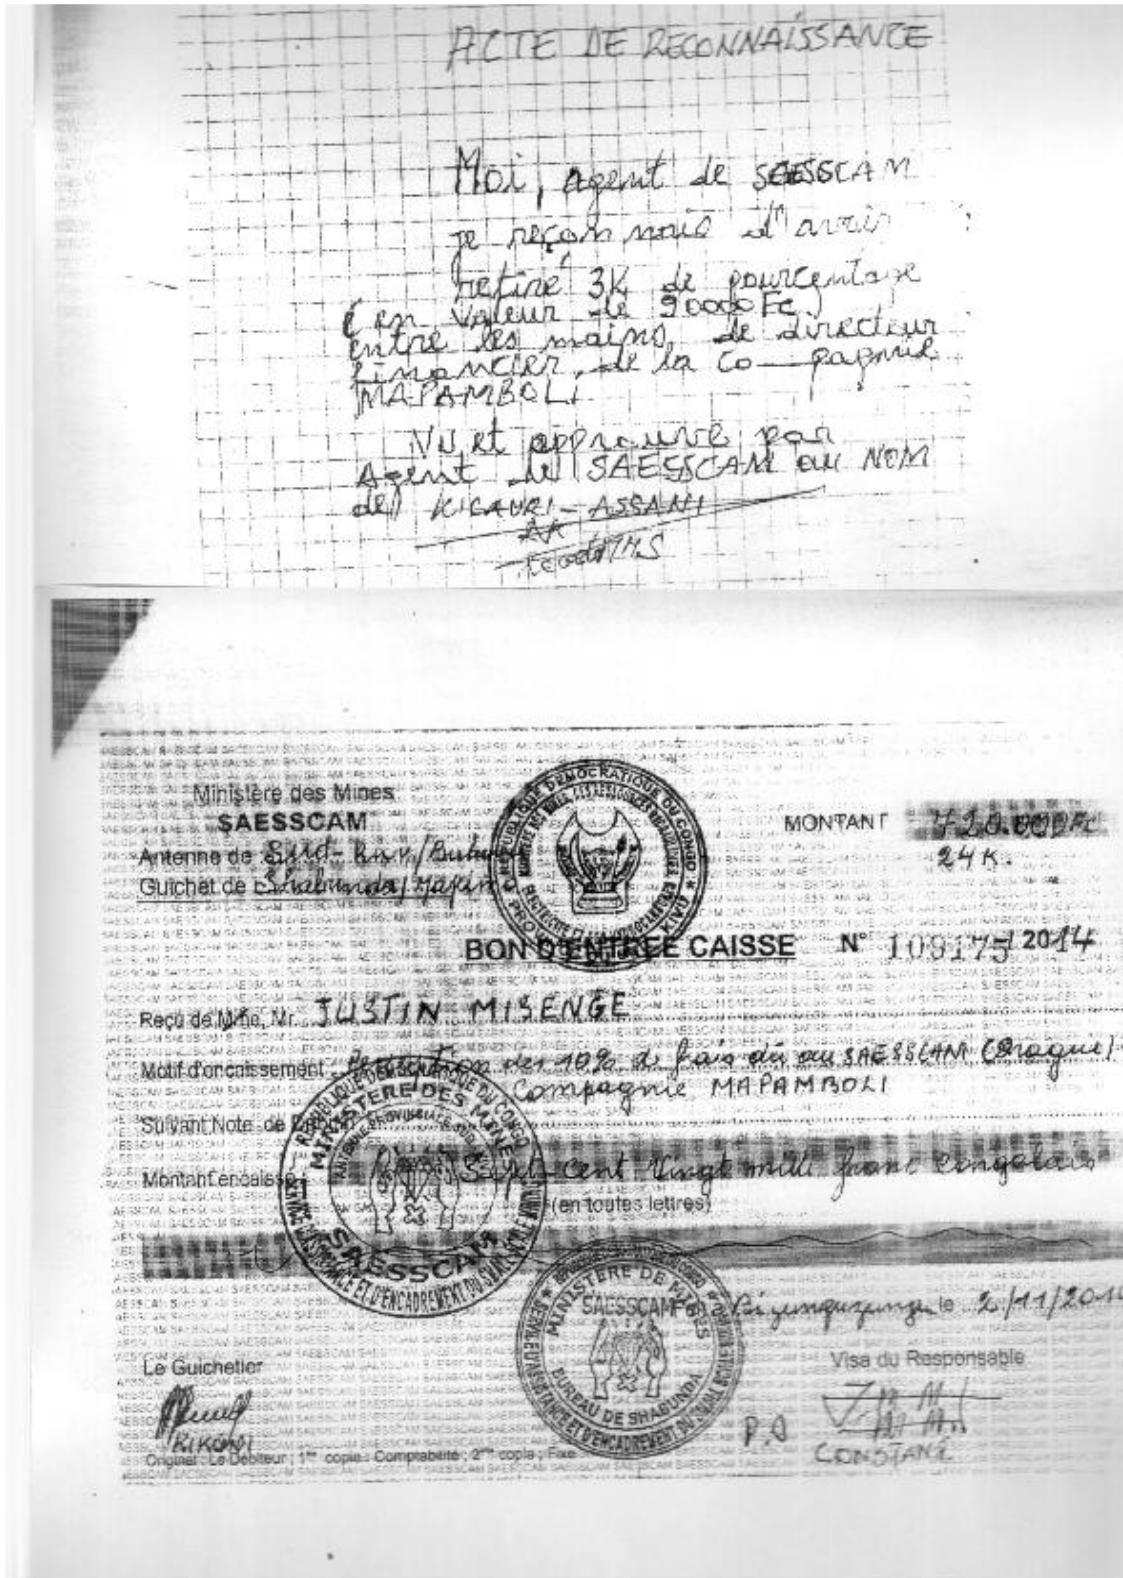 ACTE DE RECONNAISSANCE
Moi, agent de SAESSCAM
je reconnais d'avoir
retiré 3K de pourcentage
(en valeur de 90000 Fc)
entre les mains, de directeur
financier, de la Co-pagnie
MAPAMBOLI
Vu et approuvé par
Agent de SAESSCAM au NOM
de KICAURI-ASSANI
Ministère des Mines
SAESSCAM
MONTANT 720.000 Fc
24 K.
Antenne de Sud-Kivu/
Guichet de Shabunda/
RÉPUBLIQUE DÉMOCRATIQUE DU CONGO
BON D'ENTREE CAISSE N° 109175/2014
Reçu de Mme, Mr. JUSTIN MISENGE
Motif d'encaissement des 10% d frais dû au SAESSCAM (Drague)
Compagnie MAPAMBOLI
Suivant Note de
Montant encaissé Sept-cent Vingt mille franc Congolais
(en toutes lettres)
RÉPUBLIQUE DÉMOCRATIQUE DU CONGO
MINISTERE DES MINES
SAESSCAM
SERVICE D'ASSISTANCE ET D'ENCADREMENT DU SMALL SCALE MINING
MINISTERE DE MINES
BUREAU DE SHABUNDA
SERVICE D'ASSISTANCE ET D'ENCADREMENT DU SMALL SCALE MINING
SAESSCAM le 2/11/2014
Le Guichetier
Visa du Responsable
KIKONDI
P.O
CONSTANT
Original : Le Débiteur ; 1ère copie : Comptabilité ; 2ème copie ; Fixe